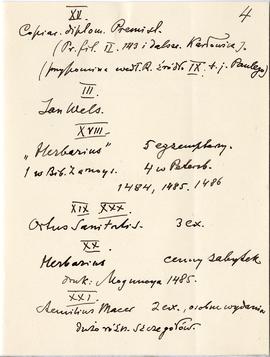 4
XV
Copiar. diplom. Premisl.
(Pr. fil. II. 143 i dalsze. Karłowicz).
(przypomina wedł. R. źródło IX t. j. Paulego)
III
Jan Wels.
XVIII
„Herbarius" 5 egzemplarz.
1 w Bib. Zamoys. 4 w Petersb.
1484, 1485. 1486
XIX XXX
Ortus Sanitatis. 3 ex.
XX
Herbarius cenny zabytek
druk: Moguncya 1485.
XXI
Aemilius Macer 2 ex. osobne wydania
dużo różn. szczegółów.